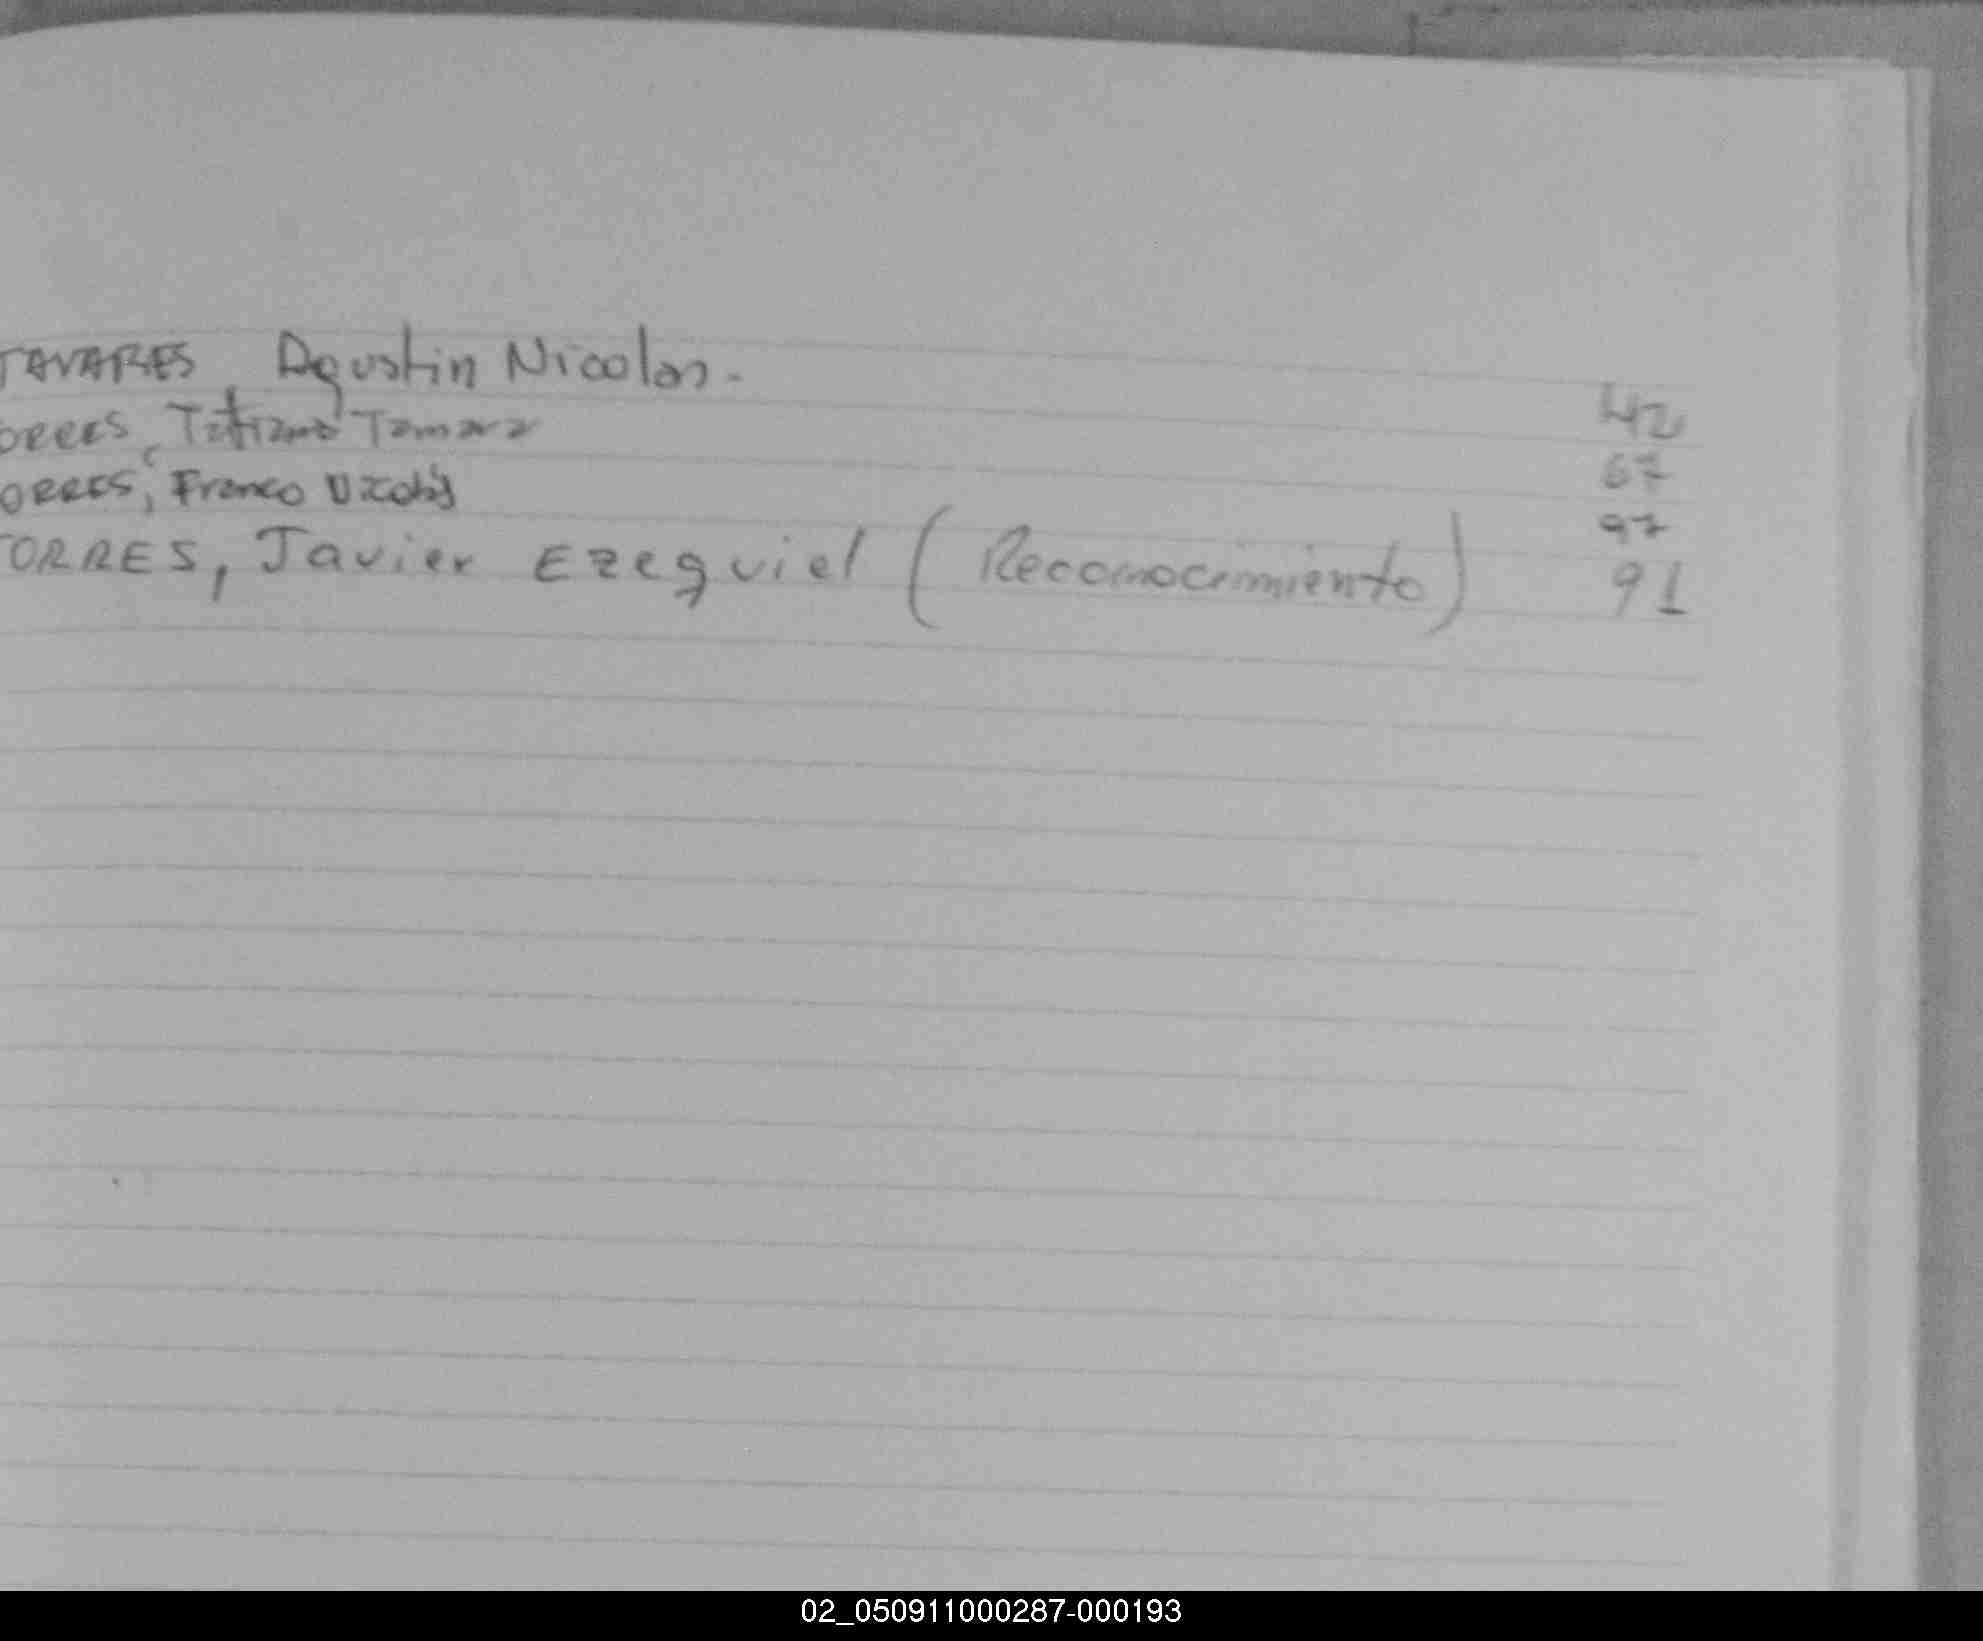 TAVARES, Agustin Nicolas.- 42
ORRES, Tatiana Tamara 67
ORRES, Franco Nicolás 97
TORRES, Javier Ezequiel (Reconocimiento) 91
02_050911000287-000193